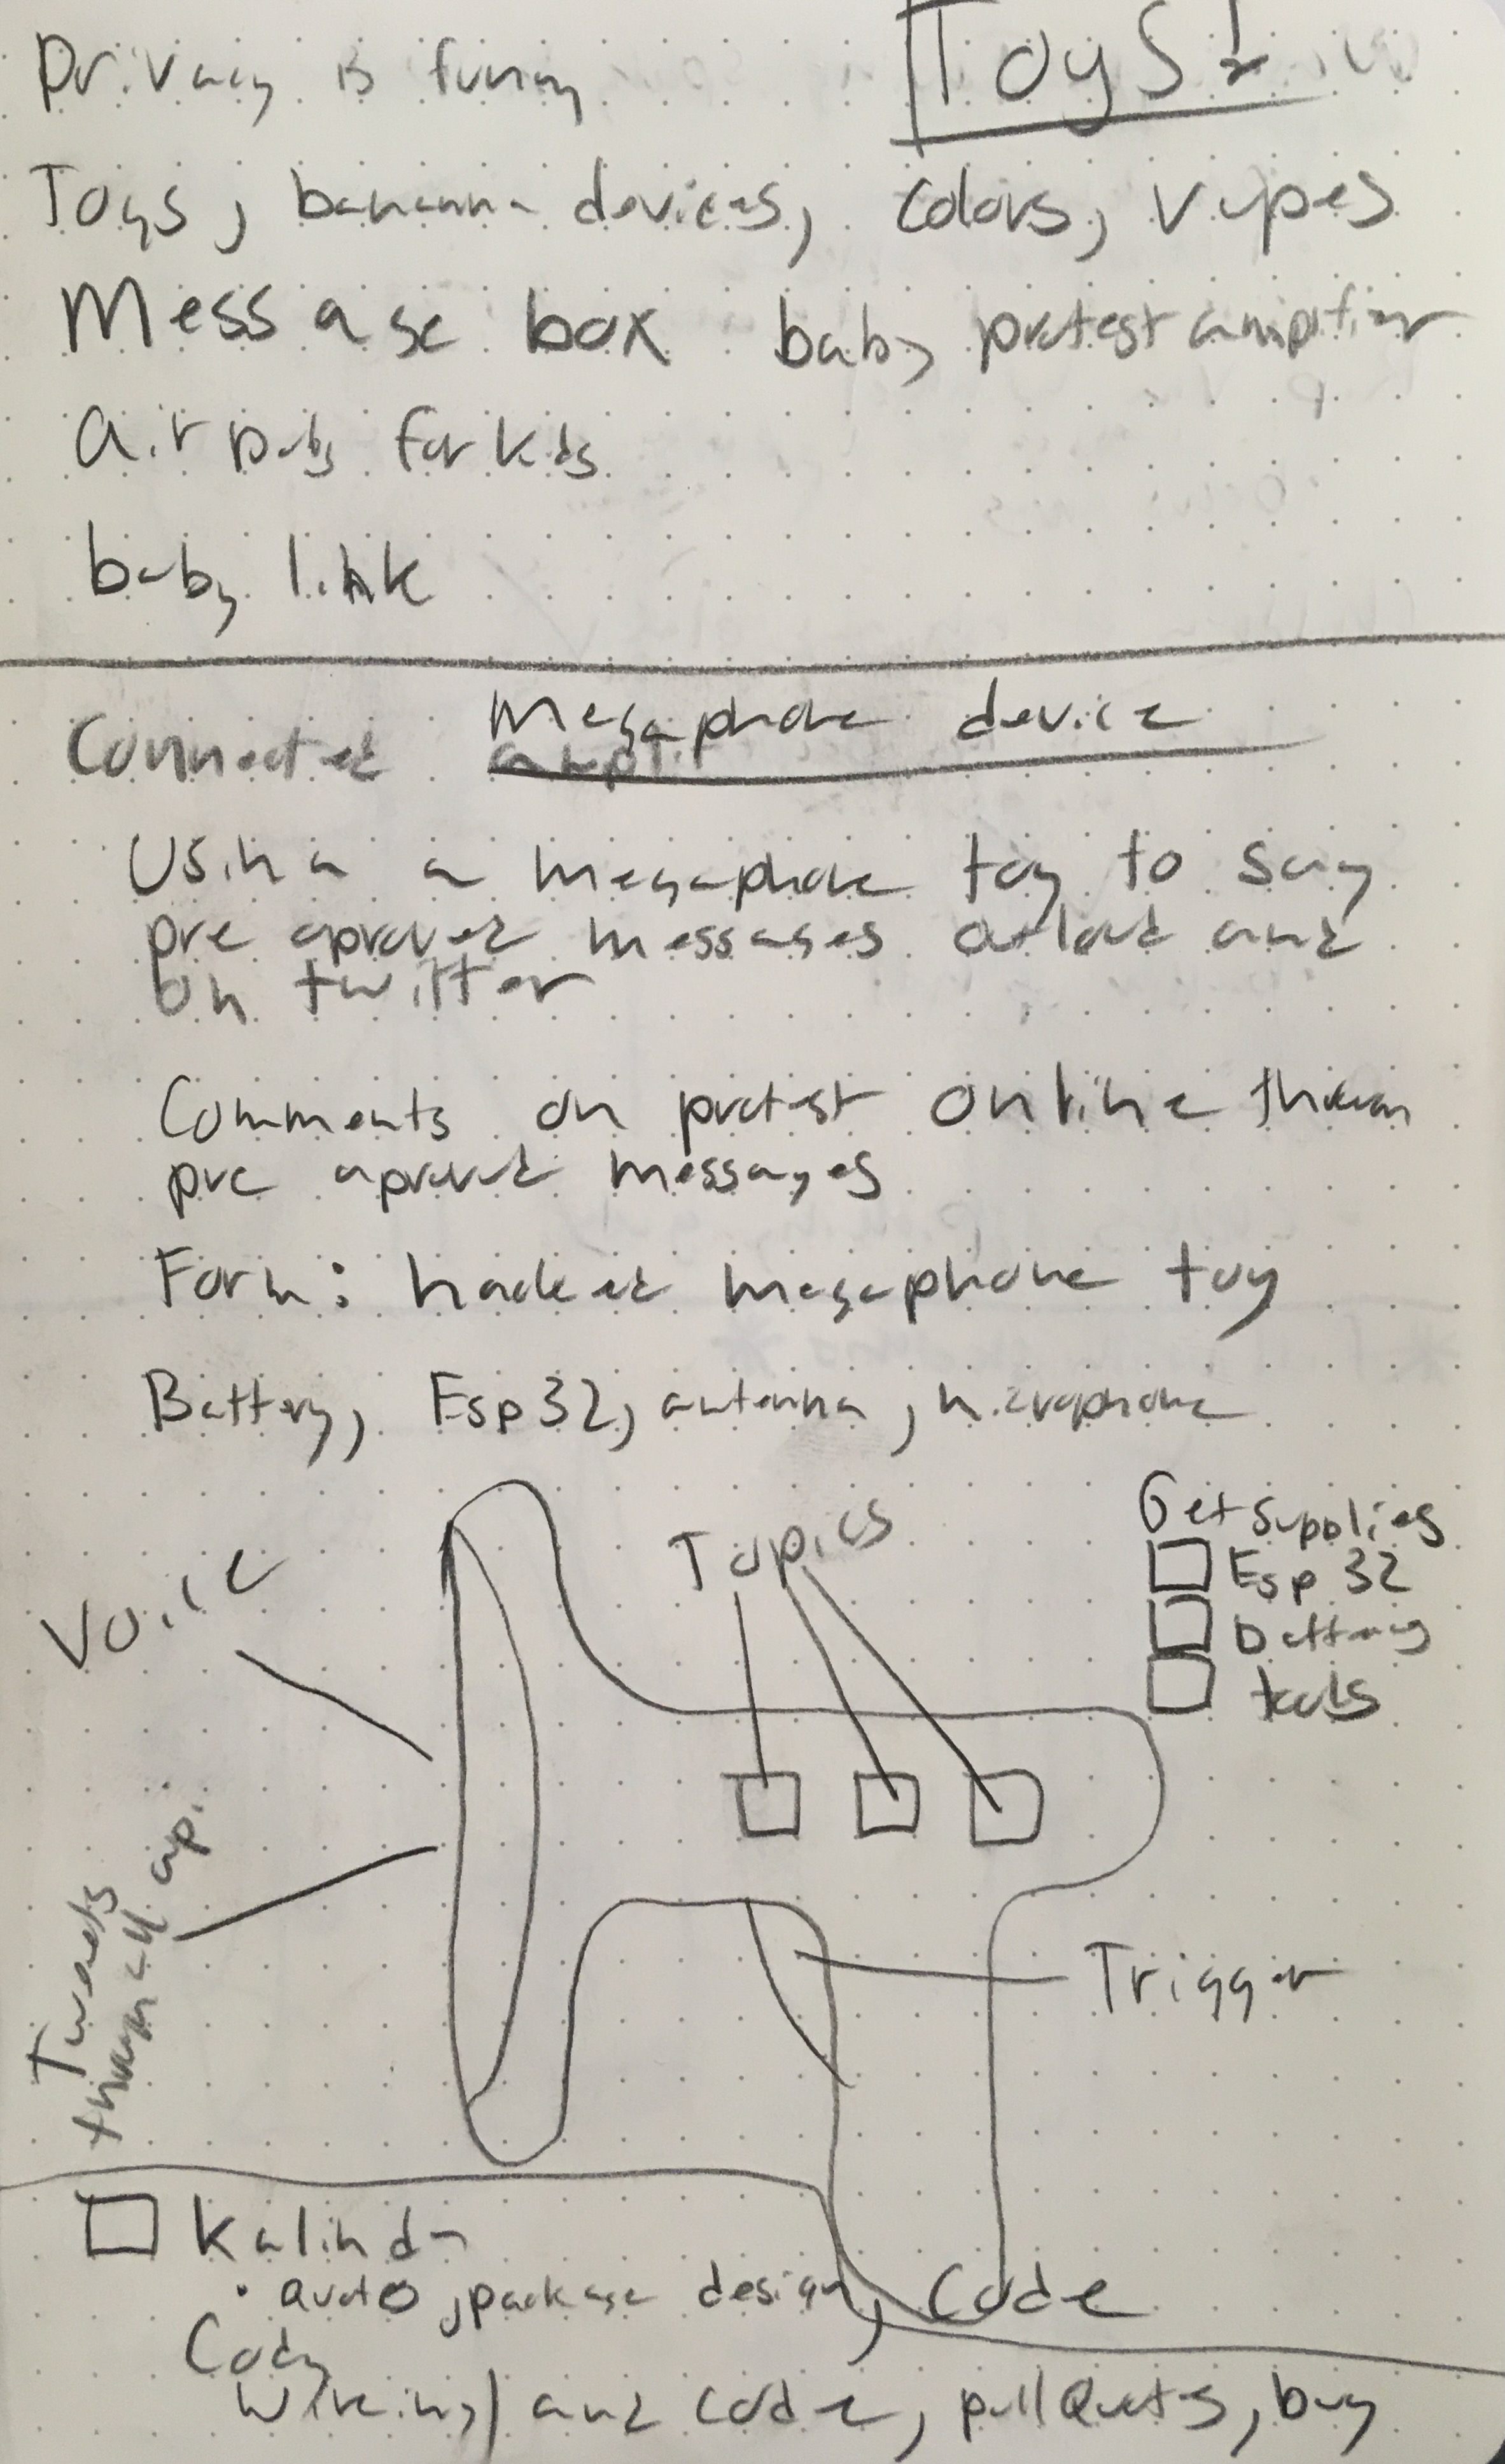 Privacy is funny
Toys
Toys, bananna devices, colors, vapes
Message box baby protest ampifier
air pods for kids
baby link
Connected Megaphone device
Using a megaphone toy to say
pre aproved messages outloud and
on twitter
Comments on protest online through
pre aproved messages
Form: hacked megaphone toy
Battery, Esp32, antenna, microphone
Get Supplies
Esp 32
battery
tools
Topics
Voice
Tweets
through api
Trigger
Kalinda
• audio, package design, Code
Cody
Wireing and code, pull Quotes, buy